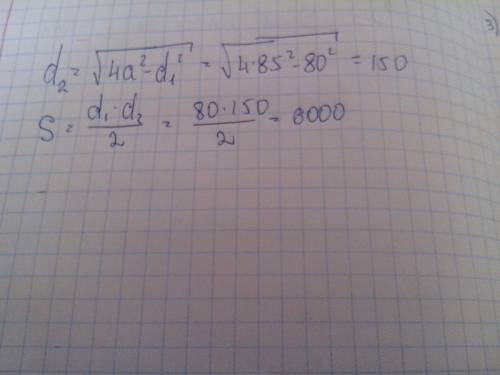 3)
d₂ = √(4a² - d₁²) = √(4·85² - 80²) = 150
S = (d₁·d₂)/2 = (80·150)/2 = 6000